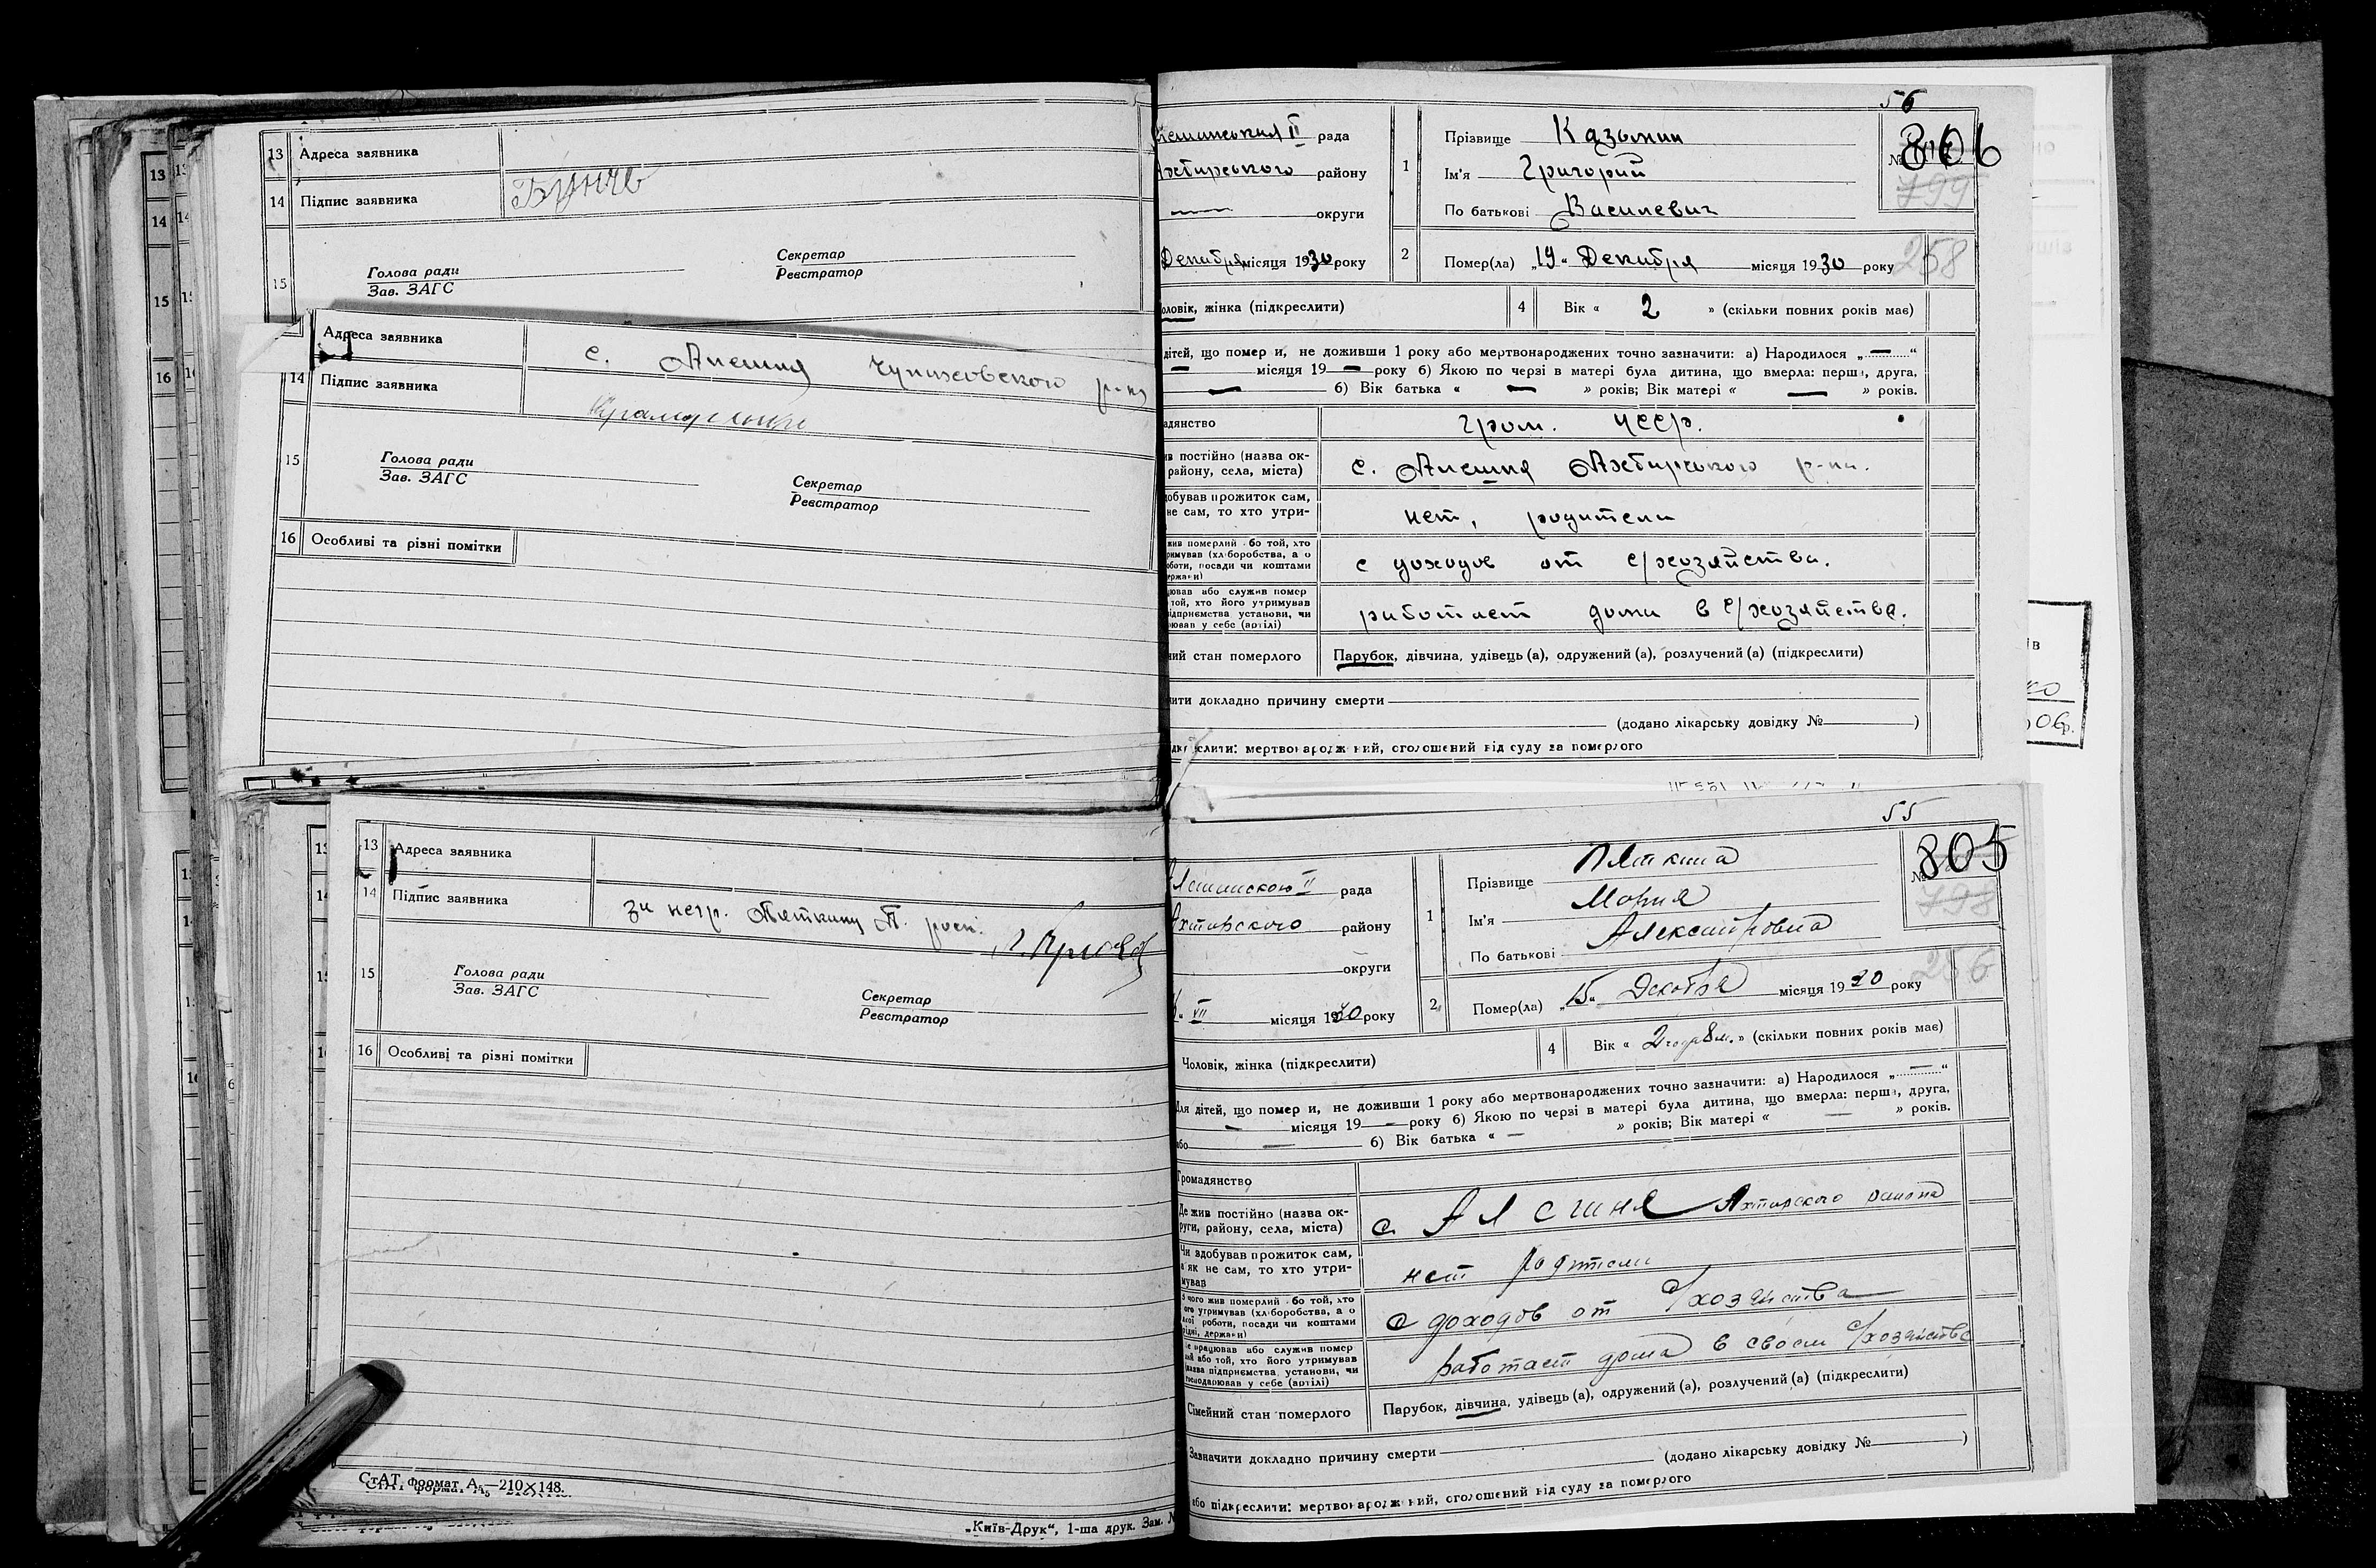 13 Адреса заявника
14 Підпис заявника
15 Голова ради
Зав. ЗАГС
Секретар
Реєстратор
Адреса заявника с. Алешня Чупаховского р-на
14 Підпис заявника
15 Голова ради
Зав. ЗАГС
Секретар
Реєстратор
16 Особливі та різні помітки
56
806
799
258
рада
району
округи
1 Прізвище Казьмин
Ім'я Григорий
По батькові Василевич
Декабря місяця 1930 року
2 Помер(ла) „19“ Декабря місяця 1930 року
оловік, жінка (підкреслити)
4 Вік « 2 » (скільки повних років має)
дітей, що помер и, не доживши 1 року або мертвонароджених точно зазначити: а) Народилося „ — “
— місяця 19 — року б) Якою по черзі в матері була дитина, що вмерла: перша, друга,
— 6) Вік батька « — » років; Вік матері « — » років.
адянство Гром. УССР.
ив постійно (назва ок-
району, села, міста) с. Алешня Ахтырского р-на.
добував прожиток сам,
не сам, то хто утри- нет, родители
жив померлий або той, хто
римував (хліборобства, а о
оботи, посади чи коштами
ержави) с доходов от с/хозяйства.
цював або служив помер
той, хто його утримував
ідприємства установи, чи
рював у себе (артілі) работает дома в с/хозяйстве.
ний стан померлого Парубок, дівчина, удівець (а), одружений (а), розлучений (а) (підкреслити)
ити докладно причину смерти
(додано лікарську довідку № )
дкреслити: мертвонароджений, оголошений від суду за померлого
13 Адреса заявника
14 Підпис заявника за негр. Пяткину П. росп.
15 Голова ради
Зав. ЗАГС
Секретар
Реєстратор
16 Особливі та різні помітки
СтАТ формат А₅—210×148.
„Київ-Друк“, 1-ша друк. Зам. №
55
805
798
рада
Ахтирского району
округи
1 Прізвище Пяткина
Ім'я Мария
По батькові Александровна
XII місяця 1930 року
2 Помер(ла) „15“ Декабря місяця 1930 року
Чоловік, жінка (підкреслити)
4 Вік « 2 года 8 м. » (скільки повних років має)
Для дітей, що помер и, не доживши 1 року або мертвонароджених точно зазначити: а) Народилося „ — “
— місяця 19 — року б) Якою по черзі в матері була дитина, що вмерла: перша, друга,
або — 6) Вік батька « — » років; Вік матері « — » років.
Громадянство
Де жив постійно (назва ок-
руги, району, села, міста) с Алешня Ахтирского района
Чи здобував прожиток сам,
а як не сам, то хто утри-
мував нет родители
З чого жив померлий або той, хто
його утримував (хліборобства, а о
якої роботи, посади чи коштами
рідні, держави) с доходов от с/хозяйства
Де працював або служив помер
лий або той, хто його утримував
(назва підприємства, установи, чи
господарював у себе (артілі) работает дома в своем с/хозяйстве
Сімейний стан померлого Парубок, дівчина, удівець (а), одружений (а), розлучений (а) (підкреслити)
Зазначити докладно причину смерти
(додано лікарську довідку № )
або підкреслити: мертвонароджений, оголошений від суду за померлого